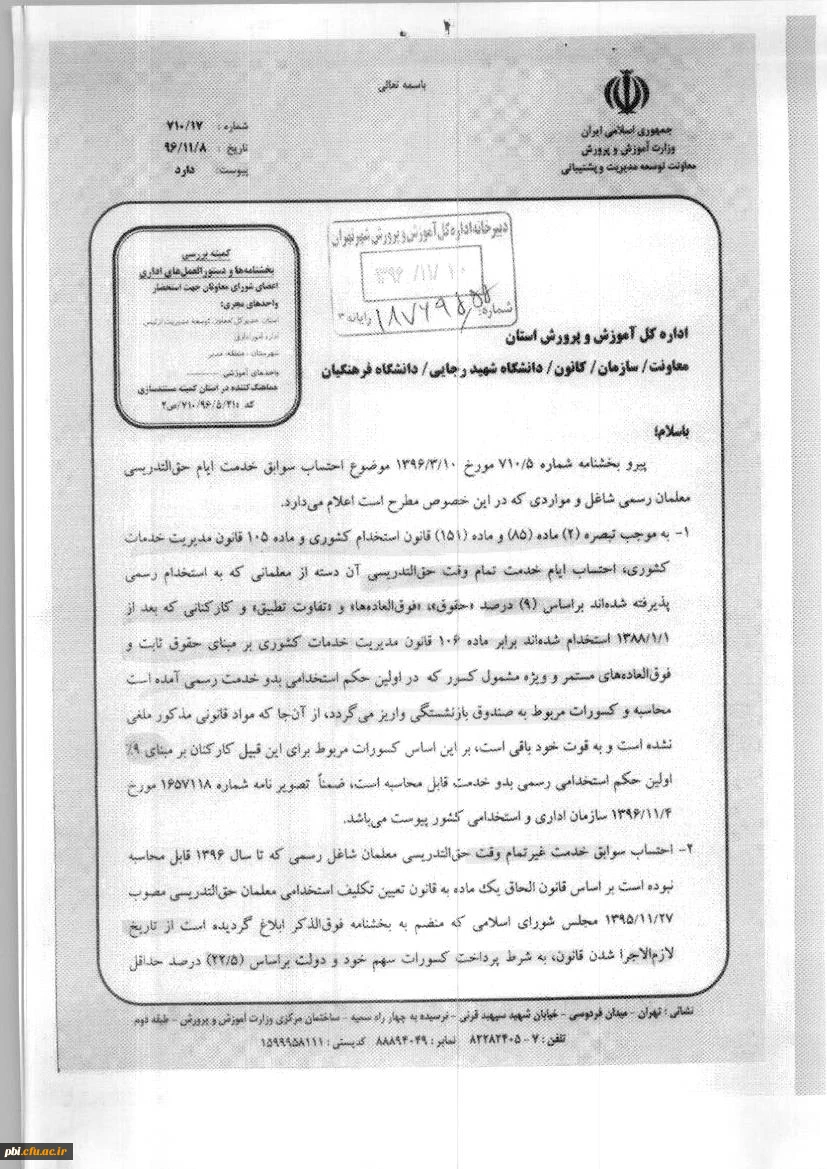 باسمه تعالی
جمهوری اسلامی ایران
وزارت آموزش و پرورش
معاونت توسعه مدیریت و پشتیبانی
شماره : ۷۱۰/۱۷
تاریخ : ۹۶/۱۱/۸
پیوست: دارد
دبیرخانه اداره کل آموزش و پرورش شهر تهران
۱۳۹۶/۱۱/۱۰
شماره:
رایانه ۳
کمیته بررسی
بخشنامه‌ها و دستورالعمل‌های اداری
اعضای شورای معاونان جهت استحضار
واحدهای مجری:
شهرستان - منطقه: مدیر
واحدهای آموزشی
هماهنگ‌کننده در استان کمیته مستندسازی
اداره کل آموزش و پرورش استان
معاونت/ سازمان/ کانون/ دانشگاه شهید رجایی/ دانشگاه فرهنگیان
باسلام؛
پیرو بخشنامه شماره ۷۱۰/۵ مورخ ۱۳۹۶/۳/۱۰ موضوع احتساب سوابق خدمت ایام حق‌التدریسی
معلمان رسمی شاغل و مواردی که در این خصوص مطرح است اعلام می‌دارد.
۱- به موجب تبصره (۲) ماده (۸۵) و ماده (۱۵۱) قانون استخدام کشوری و ماده ۱۰۵ قانون مدیریت خدمات
کشوری، احتساب ایام خدمت تمام وقت حق‌التدریسی آن دسته از معلمانی که به استخدام رسمی
پذیرفته شده‌اند براساس (۹) درصد «حقوق»، «فوق‌العاده‌ها» و «تفاوت تطبیق» و کارکنانی که بعد از
۱۳۸۸/۱/۱ استخدام شده‌اند برابر ماده ۱۰۶ قانون مدیریت خدمات کشوری بر مبنای حقوق ثابت و
فوق‌العاده‌های مستمر و ویژه مشمول کسور که در اولین حکم استخدامی بدو خدمت رسمی آمده است
محاسبه و کسورات مربوط به صندوق بازنشستگی واریز می‌گردد، از آن‌جا که مواد قانونی مذکور ملغی
نشده است و به قوت خود باقی است، بر این اساس کسورات مربوط برای این قبیل کارکنان بر مبنای ۹٪
اولین حکم استخدامی رسمی بدو خدمت قابل محاسبه است، ضمناً تصویر نامه شماره ۱۶۵۷۱۱۸ مورخ
۱۳۹۶/۱۱/۴ سازمان اداری و استخدامی کشور پیوست می‌باشد.
۲- احتساب سوابق خدمت غیرتمام وقت حق‌التدریسی معلمان شاغل رسمی که تا سال ۱۳۹۶ قابل محاسبه
نبوده است بر اساس قانون الحاق یک ماده به قانون تعیین تکلیف استخدامی معلمان حق‌التدریسی مصوب
۱۳۹۵/۱۱/۲۷ مجلس شورای اسلامی که منضم به بخشنامه فوق‌الذکر ابلاغ گردیده است از تاریخ
لازم‌الاجرا شدن قانون، به شرط پرداخت کسورات سهم خود و دولت براساس (۲۲/۵) درصد حداقل
نشانی : تهران - میدان فردوسی - خیابان شهید سپهبد قرنی - نرسیده به چهار راه سمیه - ساختمان مرکزی وزارت آموزش و پرورش - طبقه دوم
تلفن : ۷ - ۸۲۲۸۲۴۰۵ نمابر: ۸۸۸۹۴۰۴۹ کدپستی : ۱۵۹۹۹۵۸۱۱۱
pbi.cfu.ac.ir